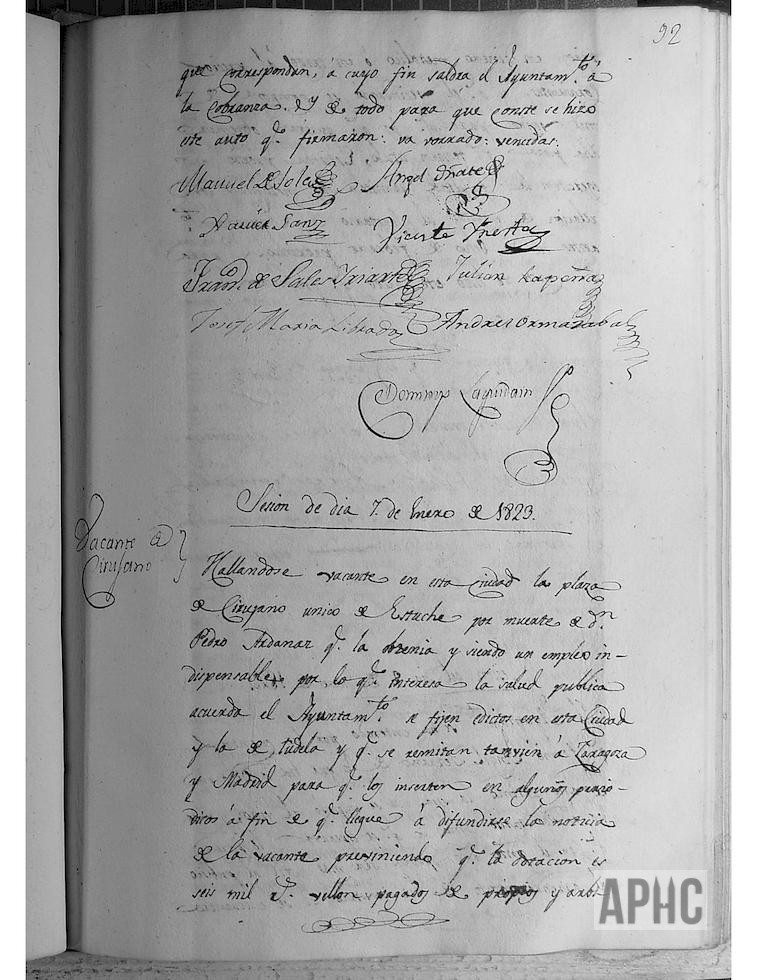 92
que correspondan, a cuyo fin saldra el Ayuntam.to á
la Cobranza. Y de todo para que conste se hizo
este auto q.e firmaron: va vorrado: vencidas:
Manuel de Soles Angel Oñate
Xavier Sanz Vicente Yñesta
Fran.co de Sales Yriarte Julian Lapeña
Josef Maria Librada Andres Ormazabal
Sesion de dia 7. de Enero de 1823.
Vacante de
Cirujano
Hallandose vacante en esta Ciudad la plaza
de Cirujano unico de Estuche por muerte de D.n
Pedro Ardanaz q.e la obtenia y siendo un empleo in-
dispensable por lo q.e interesa la salud publica
acuerda el Ayuntam.to se fijen edictos en esta Ciudad
y la de Tudela y q.e se remitan tanvien á Zaragoza
y Madrid para q.e los inserten en algunos perio-
dicos á fin de q.e llegue á difundirse la noticia
de la vacante previniendo q.e la dotacion es
seis mil r.s vellon pagados de propios y arbi-
APHC